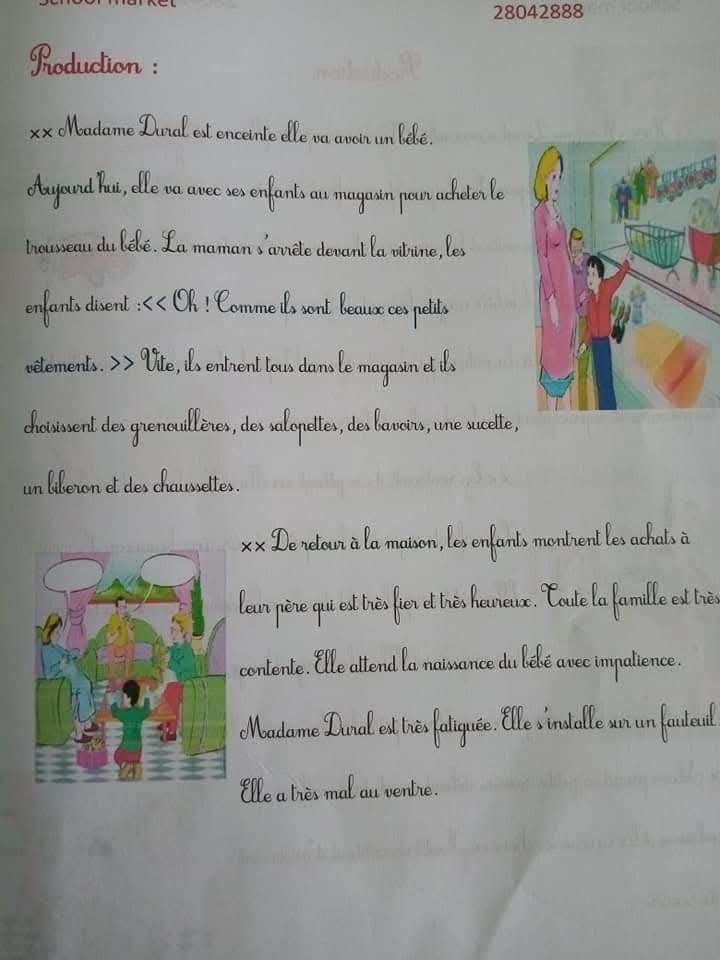 School market
28042888
Production :
xx Madame Dural est enceinte elle va avoir un bébé.
Aujourd'hui, elle va avec ses enfants au magasin pour acheter le
trousseau du bébé. La maman s'arrête devant la vitrine, les
enfants disent :<< Oh ! Comme ils sont beaux ces petits
vêtements. >> Vite, ils entrent tous dans le magasin et ils
choisissent des grenouillères, des salopettes, des bavoirs, une sucette,
un biberon et des chaussettes.
xx De retour à la maison, les enfants montrent les achats à
leur père qui est très fier et très heureux. Toute la famille est très
contente. Elle attend la naissance du bébé avec impatience.
Madame Dural est très fatiguée. Elle s'installe sur un fauteuil.
Elle a très mal au ventre.